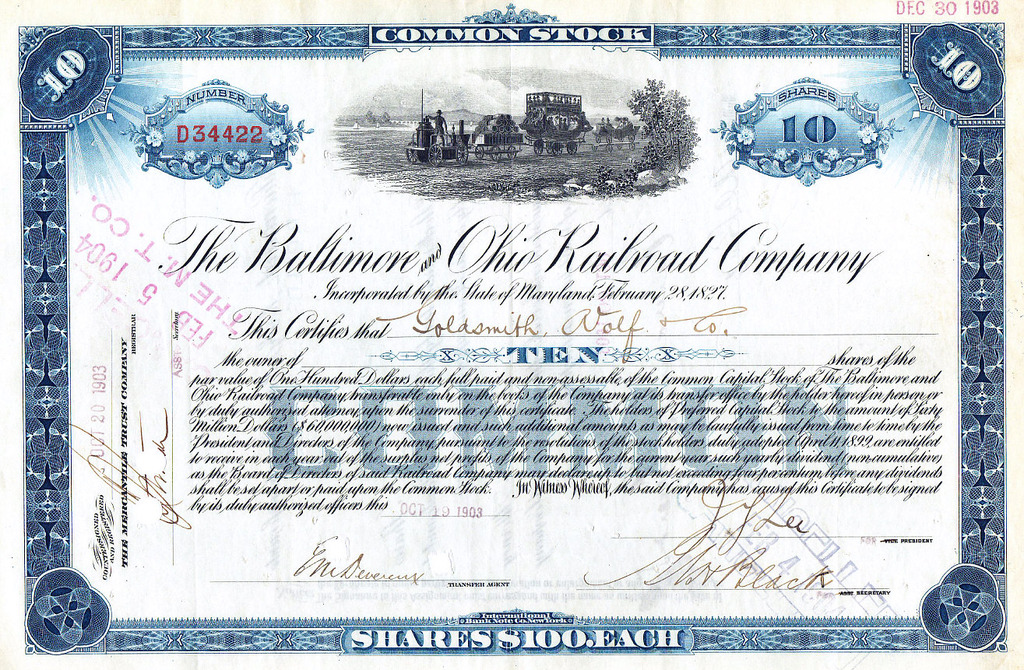 DEC 30 1903
COMMON STOCK
10
10
NUMBER
D34422
SHARES
10
The Baltimore and Ohio Railroad Company
Incorporated by the State of Maryland, February 28, 1827.
This Certifies that Goldsmith, Wolf & Co.
the owner of TEN shares of the
par value of One Hundred Dollars each, full paid and non-assessable, of the Common Capital Stock of The Baltimore and
Ohio Railroad Company, transferable only on the books of the Company at its transfer office by the holder hereof in person or
by duly authorized attorney upon the surrender of this certificate. The holders of Preferred Capital Stock to the amount of Sixty
Million Dollars ($60,000,000) now issued and such additional amounts as may be lawfully issued from time to time by the
President and Directors of the Company, pursuant to the resolution of the stockholders duly adopted April 11, 1899, are entitled
to receive in each year out of the surplus net profits of the Company for the current year such yearly dividend (non cumulative)
as the Board of Directors of said Railroad Company may declare, up to but not exceeding four per centum, before any dividends
shall be set apart or paid upon the Common Stock. In Witness Whereof, the said Company has caused this Certificate to be signed
by its duly authorized officers this OCT 19 1903
COMMON
J V Lee
FOR VICE PRESIDENT
TRANSFER AGENT
Black
ASST SECRETARY
International
Bank Note Co. New York
SHARES $100. EACH
FEB 5 1904
THE M. T. CO.
OCT 20 1903
COUNTERSIGNED
AND REGISTERED
THE MERCANTILE TRUST COMPANY
REGISTRAR
ASST Secretary